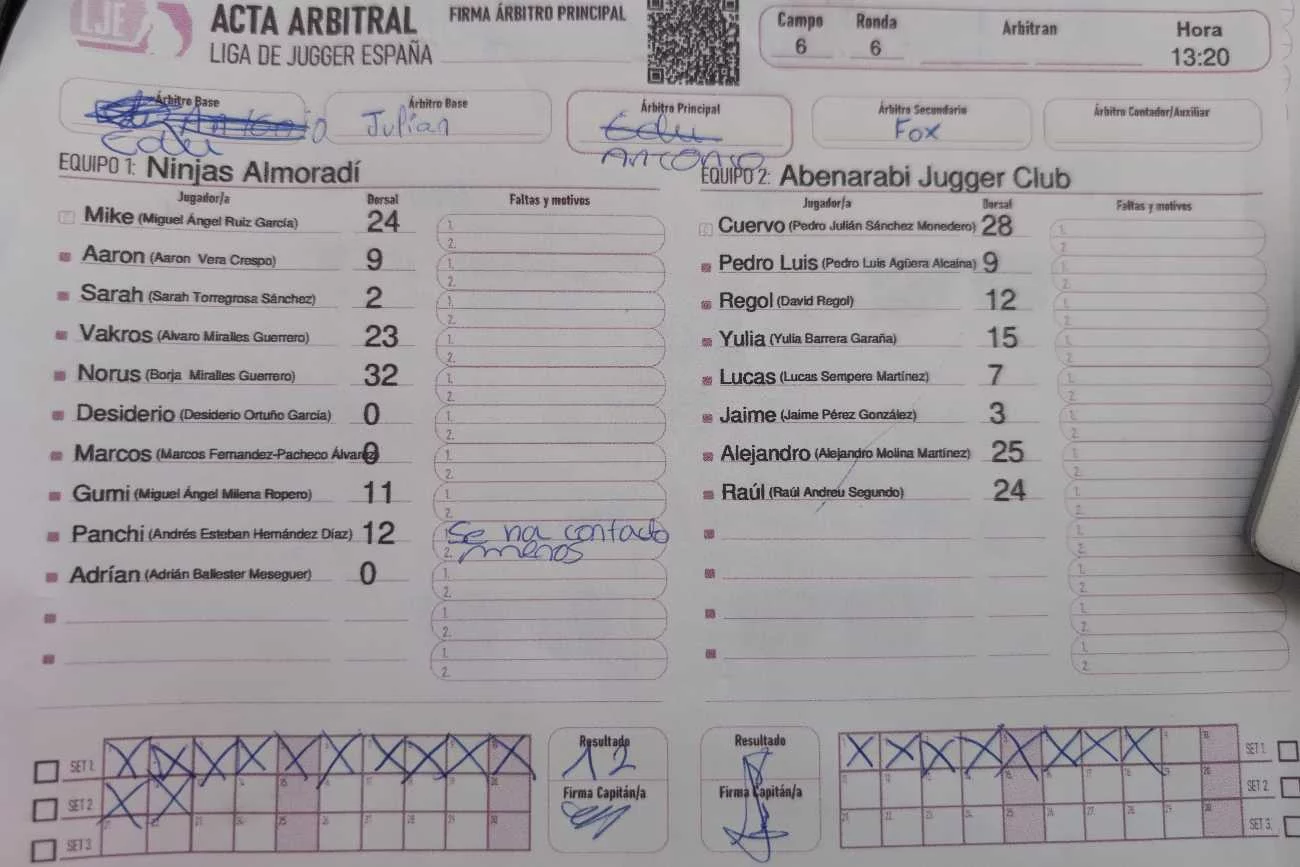 LJE
ACTA ARBITRAL
LIGA DE JUGGER ESPAÑA
FIRMA ÁRBITRO PRINCIPAL
Campo Ronda Arbitran Hora
6 6 13:20
Árbitro Base Árbitro Base Árbitro Principal Árbitro Secundario Árbitro Contador/Auxiliar
Antonio Julian Edu Fox
Edu ANTONIO
EQUIPO 1: Ninjas Almoradí
Jugador/a Dorsal Faltas y motivos
Mike (Miguel Ángel Ruiz García) 24 1. 2.
Aaron (Aaron Vera Crespo) 9 1. 2.
Sarah (Sarah Torregrosa Sánchez) 2 1. 2.
Vakros (Alvaro Miralles Guerrero) 23 1. 2.
Norus (Borja Miralles Guerrero) 32 1. 2.
Desiderio (Desiderio Ortuño García) 0 1. 2.
Marcos (Marcos Fernandez-Pacheco Álvarez) 0 1. 2.
Gumi (Miguel Ángel Milena Ropero) 11 1. 2.
Panchi (Andrés Esteban Hernández Díaz) 12 1. Se ha contado
2. menos
Adrían (Adrián Ballester Meseguer) 0 1. 2.
1. 2.
1. 2.
EQUIPO 2: Abenarabi Jugger Club
Jugador/a Dorsal Faltas y motivos
Cuervo (Pedro Julián Sánchez Monedero) 28 1. 2.
Pedro Luis (Pedro Luis Agüera Alcaina) 9 1. 2.
Regol (David Regol) 12 1. 2.
Yulia (Yulia Barrera Garaña) 15 1. 2.
Lucas (Lucas Sempere Martínez) 7 1. 2.
Jaime (Jaime Pérez González) 3 1. 2.
Alejandro (Alejandro Molina Martínez) 25 1. 2.
Raúl (Raúl Andreu Segundo) 24 1. 2.
1. 2.
1. 2.
1. 2.
1. 2.
SET 1.
SET 2
SET 3
Resultado
12
Firma Capitán/a
Resultado
8
Firma Capitán/a
SET 1.
SET 2
SET 3.